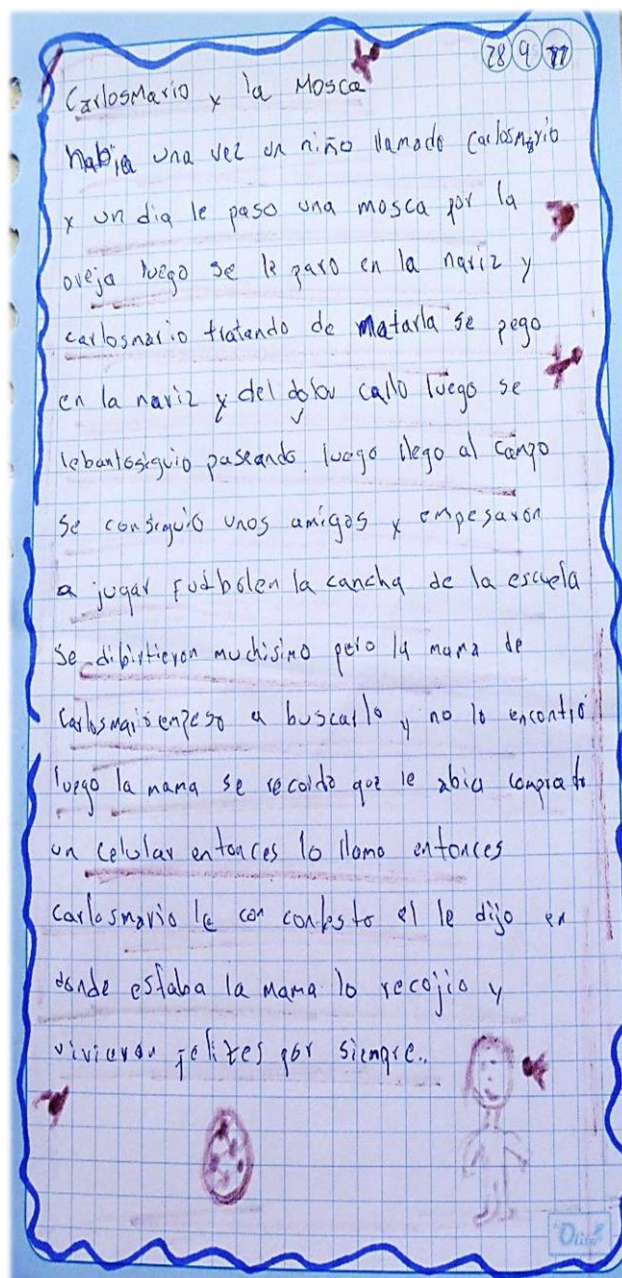 28 9 11
CarlosMario y la Mosca
habia una vez un niño llamado Carlosmario
y un dia le paso una mosca por la
oveja luego se le paro en la nariz y
carlosmario tratando de Matarla se pego
en la nariz y del dolor callo luego se
lebantosiguio paseando luego llego al campo
se consiguió unos amigos y empesaron
a jugar fudbolen la cancha de la escuela
se dibirtieron muchisimo pero la mama de
Carlosmario empeso a buscarlo y no lo encontró
luego la mama se recordo que le abia comprado
un celular entonces lo llamo entonces
carlosmario le con contesto el le dijo en
donde estaba la mama lo recojio y
vivieron felizes por siempre..